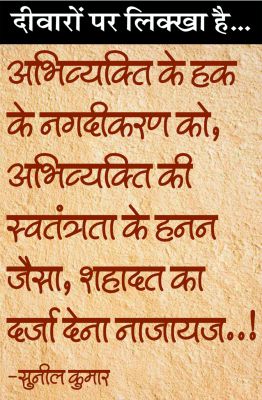 दीवारों पर लिक्खा है...
अभिव्यक्ति के हक
के नगदीकरण को,
अभिव्यक्ति की
स्वतंत्रता के हनन
जैसा, शहादत का
दर्जा देना नाजायज..!
-सुनील कुमार